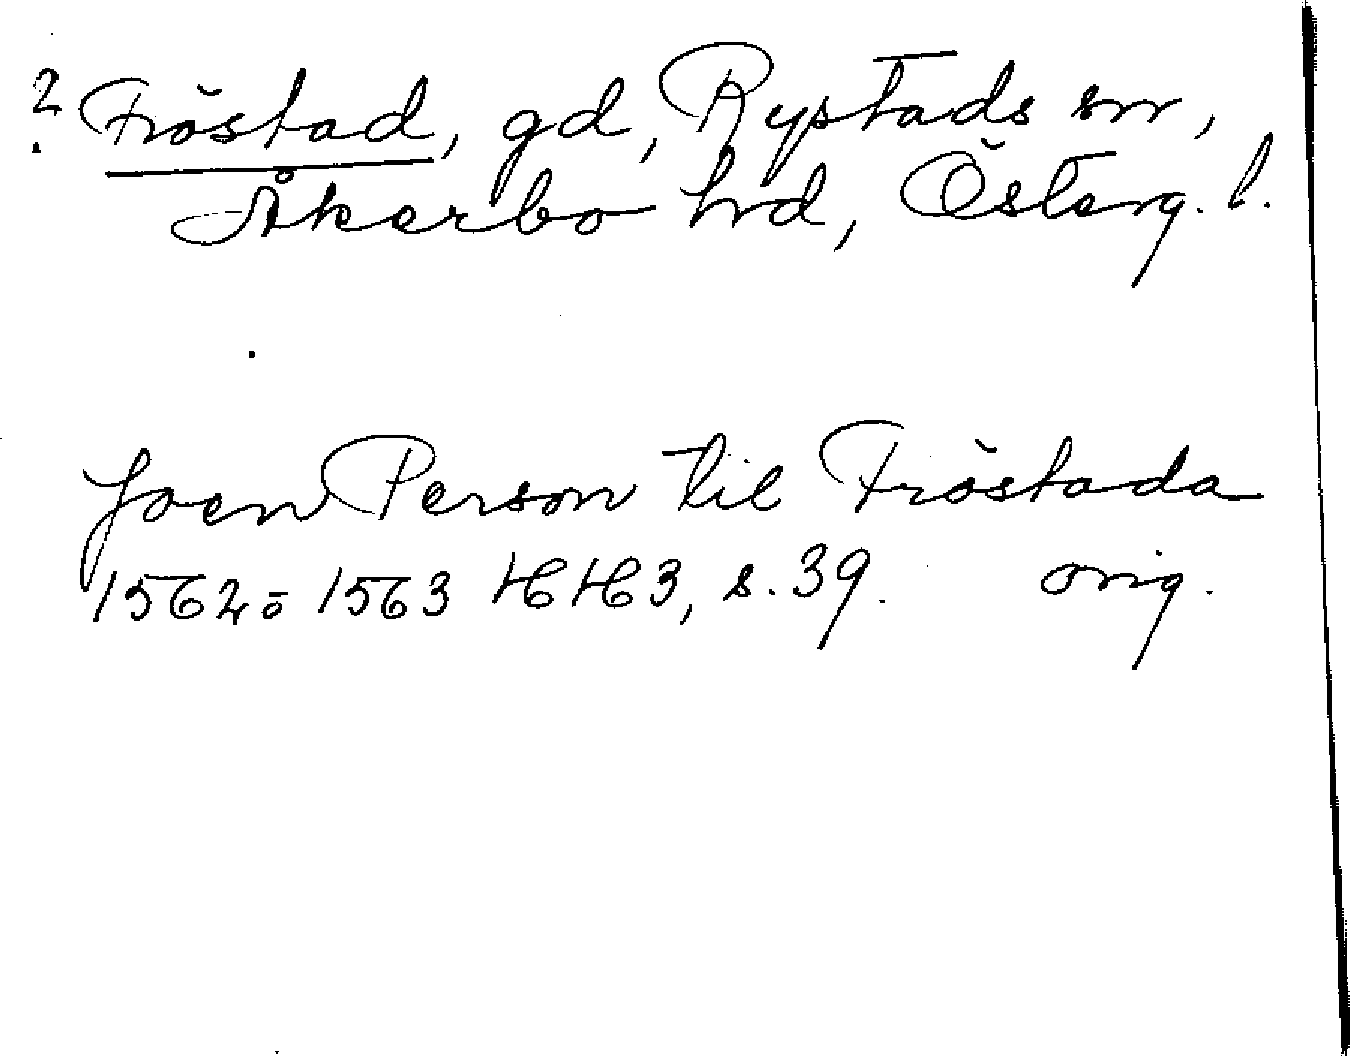 ? Fröstad, gd, Rystads sn,
Åkerbo hd, Österg. l.
Joen Person til Fröstada
1562 o 1563 HH3, s. 39. orig.